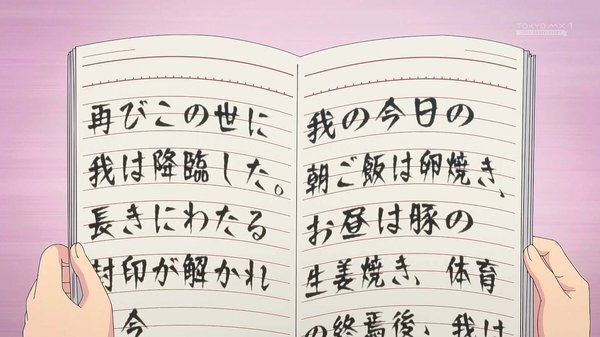 TOKYO MX 1
再びこの世に
我は降臨した。
長きにわたる
封印が解かれ
今
我の今日の
朝ご飯は卵焼き、
お昼は豚の
生姜焼き、体育
の終焉後、我は